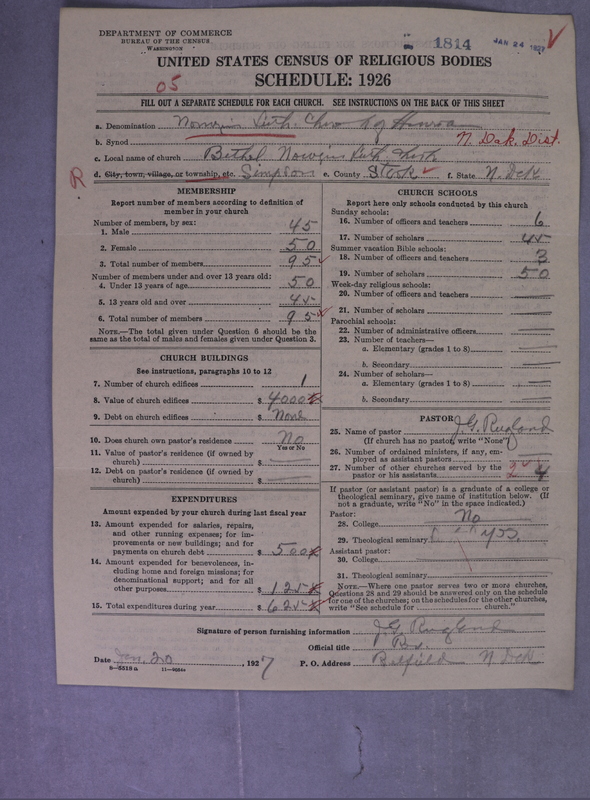 DEPARTMENT OF COMMERCE
BUREAU OF THE CENSUS
WASHINGTON
1814 JAN 24 1927
UNITED STATES CENSUS OF RELIGIOUS BODIES
SCHEDULE: 1926
05
FILL OUT A SEPARATE SCHEDULE FOR EACH CHURCH. SEE INSTRUCTIONS ON THE BACK OF THIS SHEET
a. Denomination Luth.
b. Synod N. Dak. Dist.
c. Local name of church Bethel Luth
R
d. City, town, village, or township, etc. Simpson e. County Stark f. State N. Dak
MEMBERSHIP
Report number of members according to definition of
member in your church
Number of members, by sex:
1. Male 45
2. Female 50
3. Total number of members 95
Number of members under and over 13 years old:
4. Under 13 years of age 50
5. 13 years old and over 45
6. Total number of members 95
NOTE.—The total given under Question 6 should be the
same as the total of males and females given under Question 3.
CHURCH BUILDINGS
See instructions, paragraphs 10 to 12
7. Number of church edifices 1
8. Value of church edifices $ 4000
9. Debt on church edifices $ None
10. Does church own pastor's residence No
Yes or No
11. Value of pastor's residence (if owned by
church) $
12. Debt on pastor's residence (if owned by
church) $
EXPENDITURES
Amount expended by your church during last fiscal year
13. Amount expended for salaries, repairs,
and other running expenses; for im-
provements or new buildings; and for
payments on church debt $ 500
14. Amount expended for benevolences, in-
cluding home and foreign missions; for
denominational support; and for all
other purposes $ 125
15. Total expenditures during year $ 625
CHURCH SCHOOLS
Report here only schools conducted by this church
Sunday schools:
16. Number of officers and teachers 6
17. Number of scholars 45
Summer vacation Bible schools:
18. Number of officers and teachers 3
19. Number of scholars 50
Week-day religious schools:
20. Number of officers and teachers
21. Number of scholars
Parochial schools:
22. Number of administrative officers
23. Number of teachers—
a. Elementary (grades 1 to 8)
b. Secondary
24. Number of scholars—
a. Elementary (grades 1 to 8)
b. Secondary
PASTOR
25. Name of pastor J.G. Rugland
(If church has no pastor, write "None")
26. Number of ordained ministers, if any, em-
ployed as assistant pastors
27. Number of other churches served by the
pastor or his assistants 4
If pastor (or assistant pastor) is a graduate of a college or
theological seminary, give name of institution below. (If
not a graduate, write "No" in the space indicated.)
Pastor:
28. College No
29. Theological seminary yes
Assistant pastor:
30. College
31. Theological seminary
NOTE.—Where one pastor serves two or more churches,
Questions 28 and 29 should be answered only on the schedule
for one of the churches; on the schedules for the other churches,
write "See schedule for church."
Signature of person furnishing information J.G. Rugland
Official title
Date Jan. 20, 1927 P. O. Address Belfield N Dak
8—5518a 11—9664